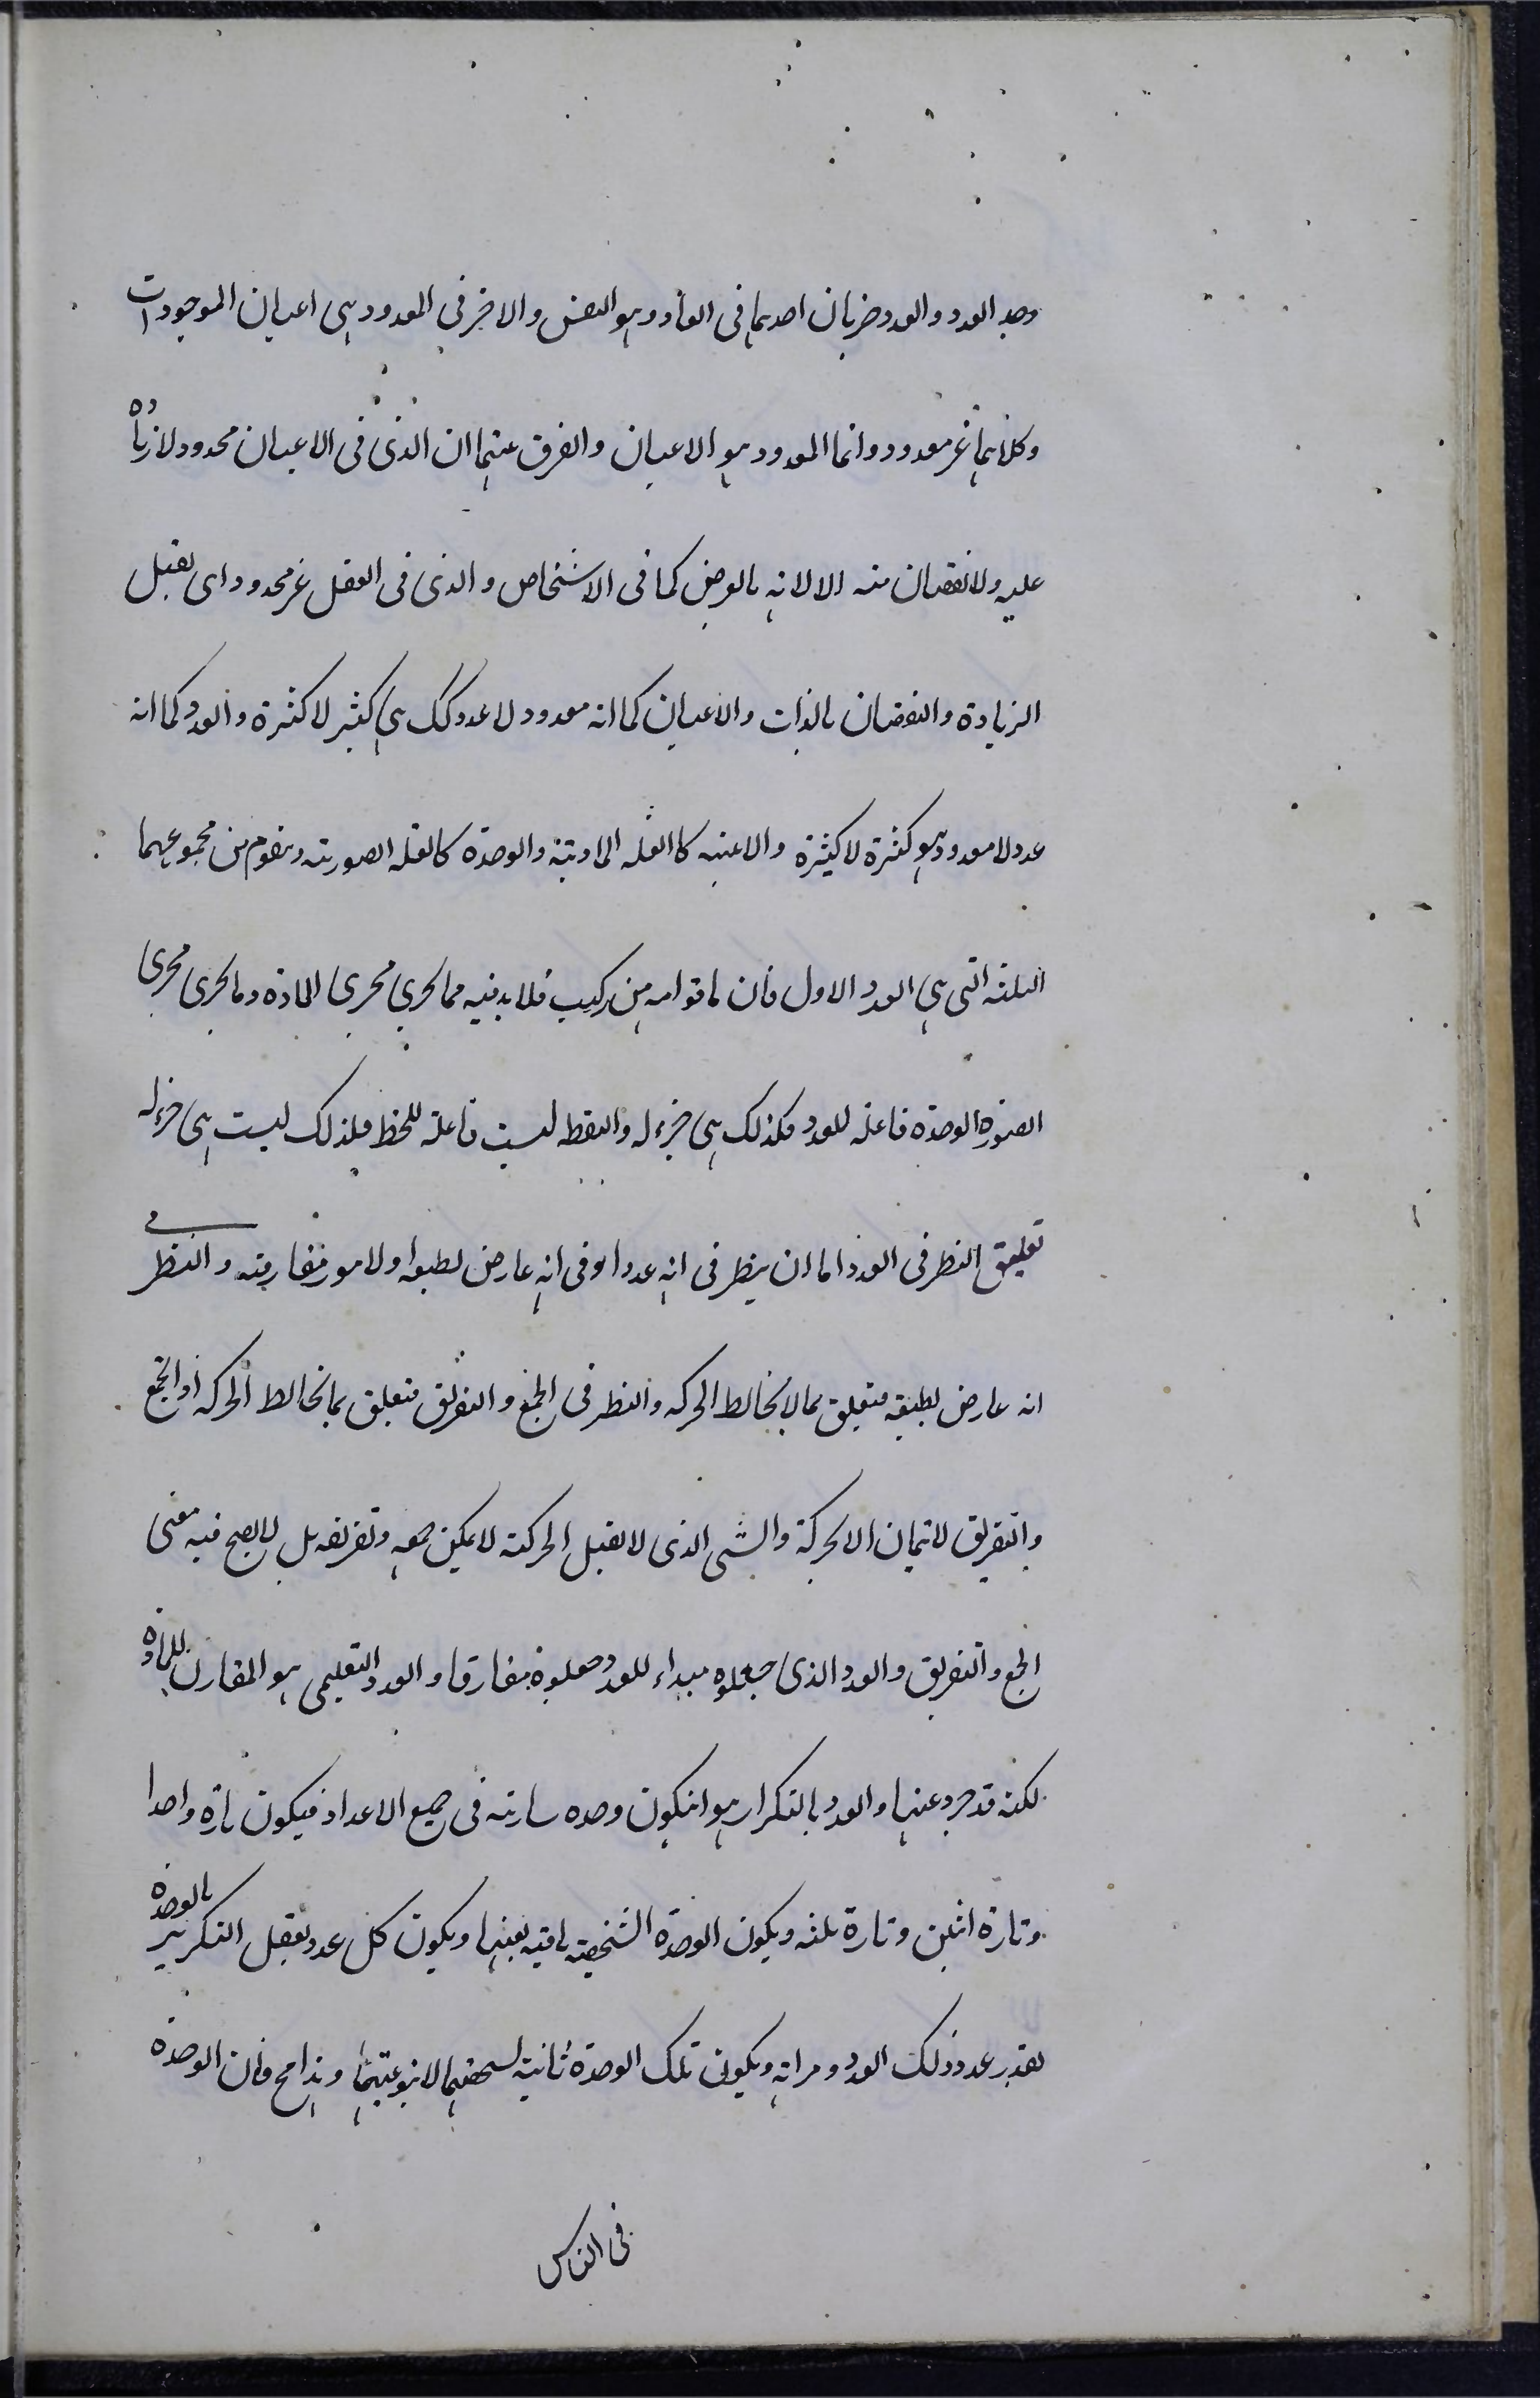 وجد العدد والعدد ضربان احدهما فى العاد وهو النفس والاخر فى المعدود هى اعيان الموجودات
وكلاهما غير معدود وانما المعدود هو الاعيان والفرق عنهما ان الذى فى الاعيان محدود لا زيادة
عليه ولا نقصان منه الا لانه بالعرض كما فى الاشخاص والذى فى العقل غير محدود اى يقبل
الزيادة والنقصان بالذات والاعيان كما انه معدود لا عدد كك هى كثير لا كثرة والعدد كما انه
عدد لا معدود هو كثرة لا كثيرة والاثنينه كالعلة المادية والوحدة كالعلة الصورية ويقوم من مجموعهما
الثلثه التى هى العدد الاول فان ما قوامه من تركيب فلا بد فيه مما يجرى مجرى المادة وما يجرى مجرى
الصورة الوحدة فاعلة للعدد فكذلك هى جزء له والنقطه ليست فاعلة للخط فلذلك ليست هى جزء له
تعليق النظر فى العدد اما ان ينظر فى انه عدد او فى انه عارض لطبيعة او لامور مفارقة والنظر فى
انه عارض لطبيعة متعلق بما لا يخالط الحركه والنظر فى الجمع والتفريق متعلق بما يخالط الحركه اذ الجمع
والتفريق لا يتمان الا بحركة والشى الذى لا يقبل الحركة لا يمكن جمعه وتفريقه بل لا يصح فيه معنى
الجمع والتفريق والعدد الذى جعلوه مبداء للعدد جعلوه مفارقا والعدد التعليمى هو المقارن للمادة
لكنه قد جرد عنها والعدد بالتكرار هو ان يكون وحده سارية فى جميع الاعداد فيكون تارة واحدا
وتارة اثنين وتارة ثلثه ويكون الوحدة الشخصية باقية بعينها ويكون كل عدد يقبل التكرير بالوحدة
بقدر عدد ذلك العدد ومراته ويكون تلك الوحدة ثانية بشخصها لا بنوعيتها وهذا مح فان الوحدة
فى الناس